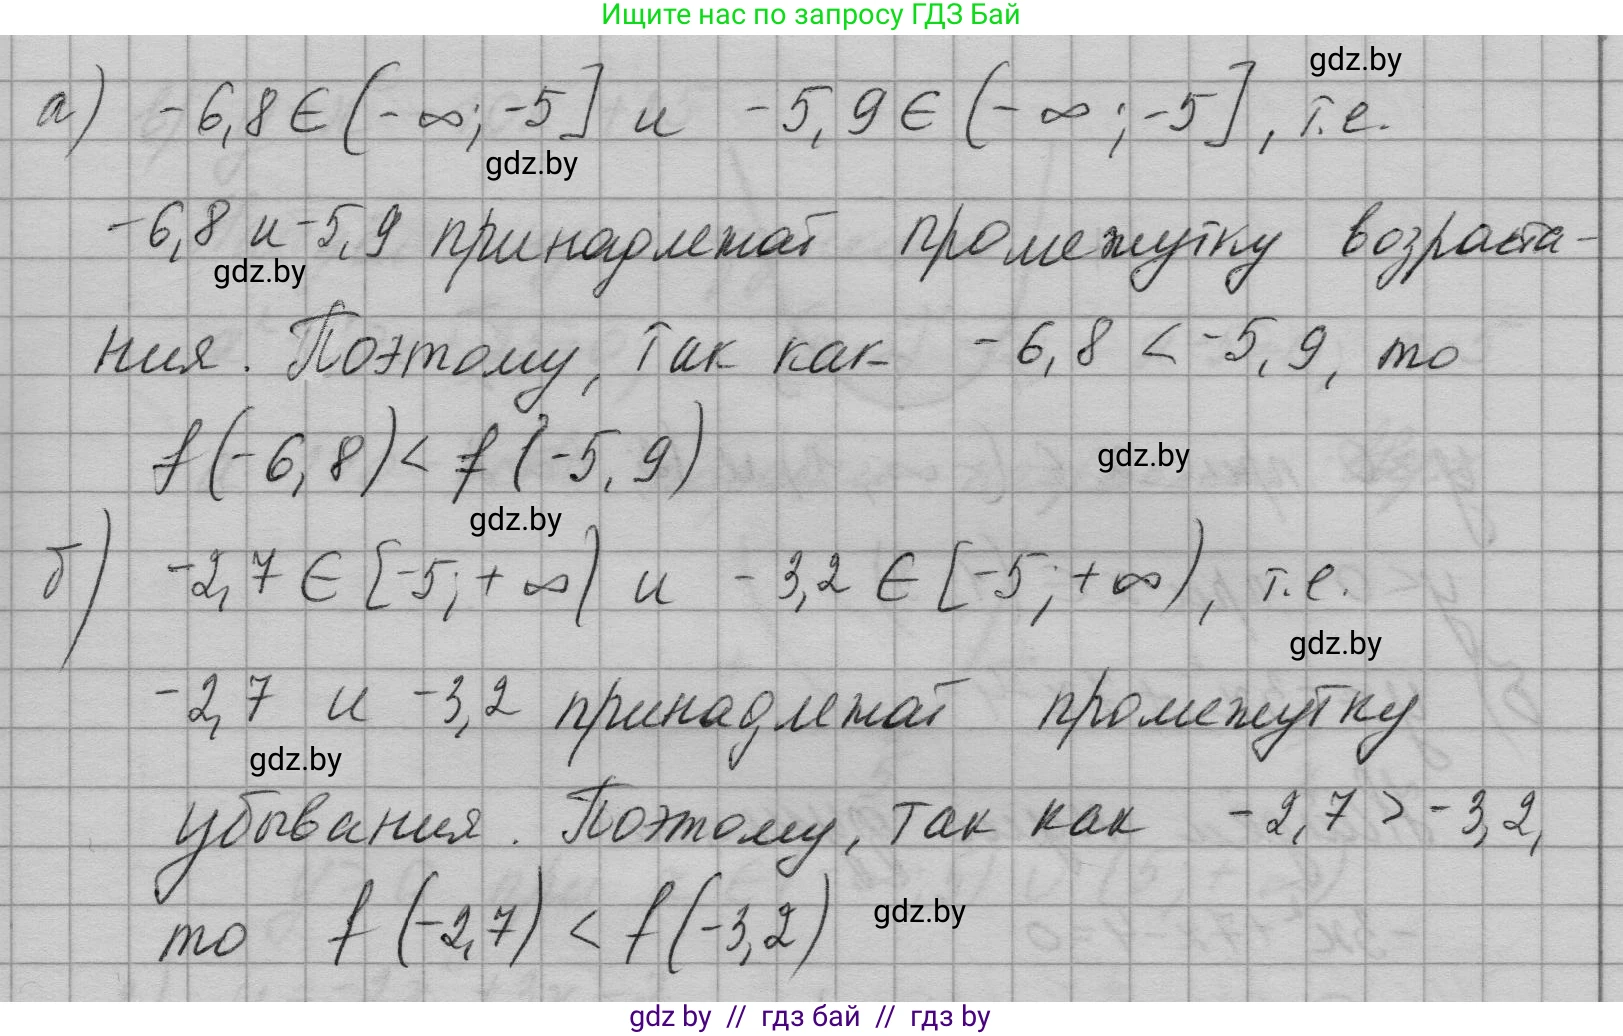 Ищите нас по запросу ГДЗ Бай
gdz.by
а) -6,8 ∈ (-∞; -5] и -5,9 ∈ (-∞; -5], т.е.
gdz.by
-6,8 и -5,9 принадлежат промежутку возраста-
gdz.by
ния. Поэтому, так как -6,8 < -5,9, то
f(-6,8) < f(-5,9)
gdz.by
gdz.by
б) -2,7 ∈ [-5; +∞) и -3,2 ∈ [-5; +∞), т.е.
gdz.by
-2,7 и -3,2 принадлежат промежутку
gdz.by
убывания. Поэтому, так как -2,7 > -3,2,
то f(-2,7) < f(-3,2)
gdz.by
gdz by // гдз бай // гдз by